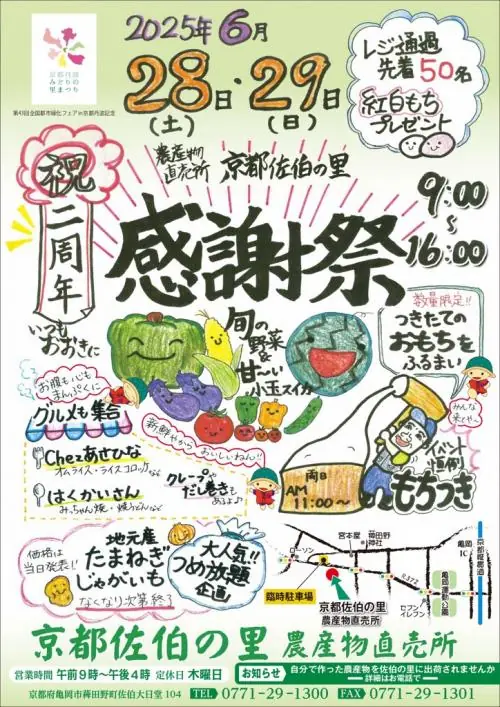 2025年6月
28日・29日
(土) (日)
レジ通過
先着50名
紅白もち
プレゼント
京都丹波
みどりの
里まつり
第43回全国都市緑化フェアin京都丹波記念
農産物
直売所
京都佐伯の里
祝二周年
感謝祭
9:00
~
16:00
いつも
おおきに
旬の
野菜
&
甘~い
小玉スイカ
数量限定!!
つきたての
おもちを
ふるまい
お腹も心も
まんぷくに
グルメも集合
新鮮やからおいしいねん!!
みんな
来てや~
イベント
恒例
もちつき
両日
AM
11:00~
Chezあさひな
オムライス・ライスコロッケなど
はくかいさん
みっちゃん焼・焼うどんなど
クレープや
だし巻きも
あるよ♪
価格は
当日発表!!
地元産
たまねぎ
じゃがいも
なくなり次第終了
大人気!!
つめ放題
企画
ローソン
宮本屋
薭田野
神社
亀岡
IC
京都縦貫道
R.372
亀岡運動公園
セブン
イレブン
臨時駐車場
京都佐伯の里
農産物直売所
京都佐伯の里 農産物直売所
営業時間 午前9時~午後4時 定休日 木曜日
お知らせ
自分で作った農産物を佐伯の里に出荷されませんか
詳細はお電話で
京都府亀岡市薭田野町佐伯大日堂 104 TEL 0771-29-1300 FAX 0771-29-1301